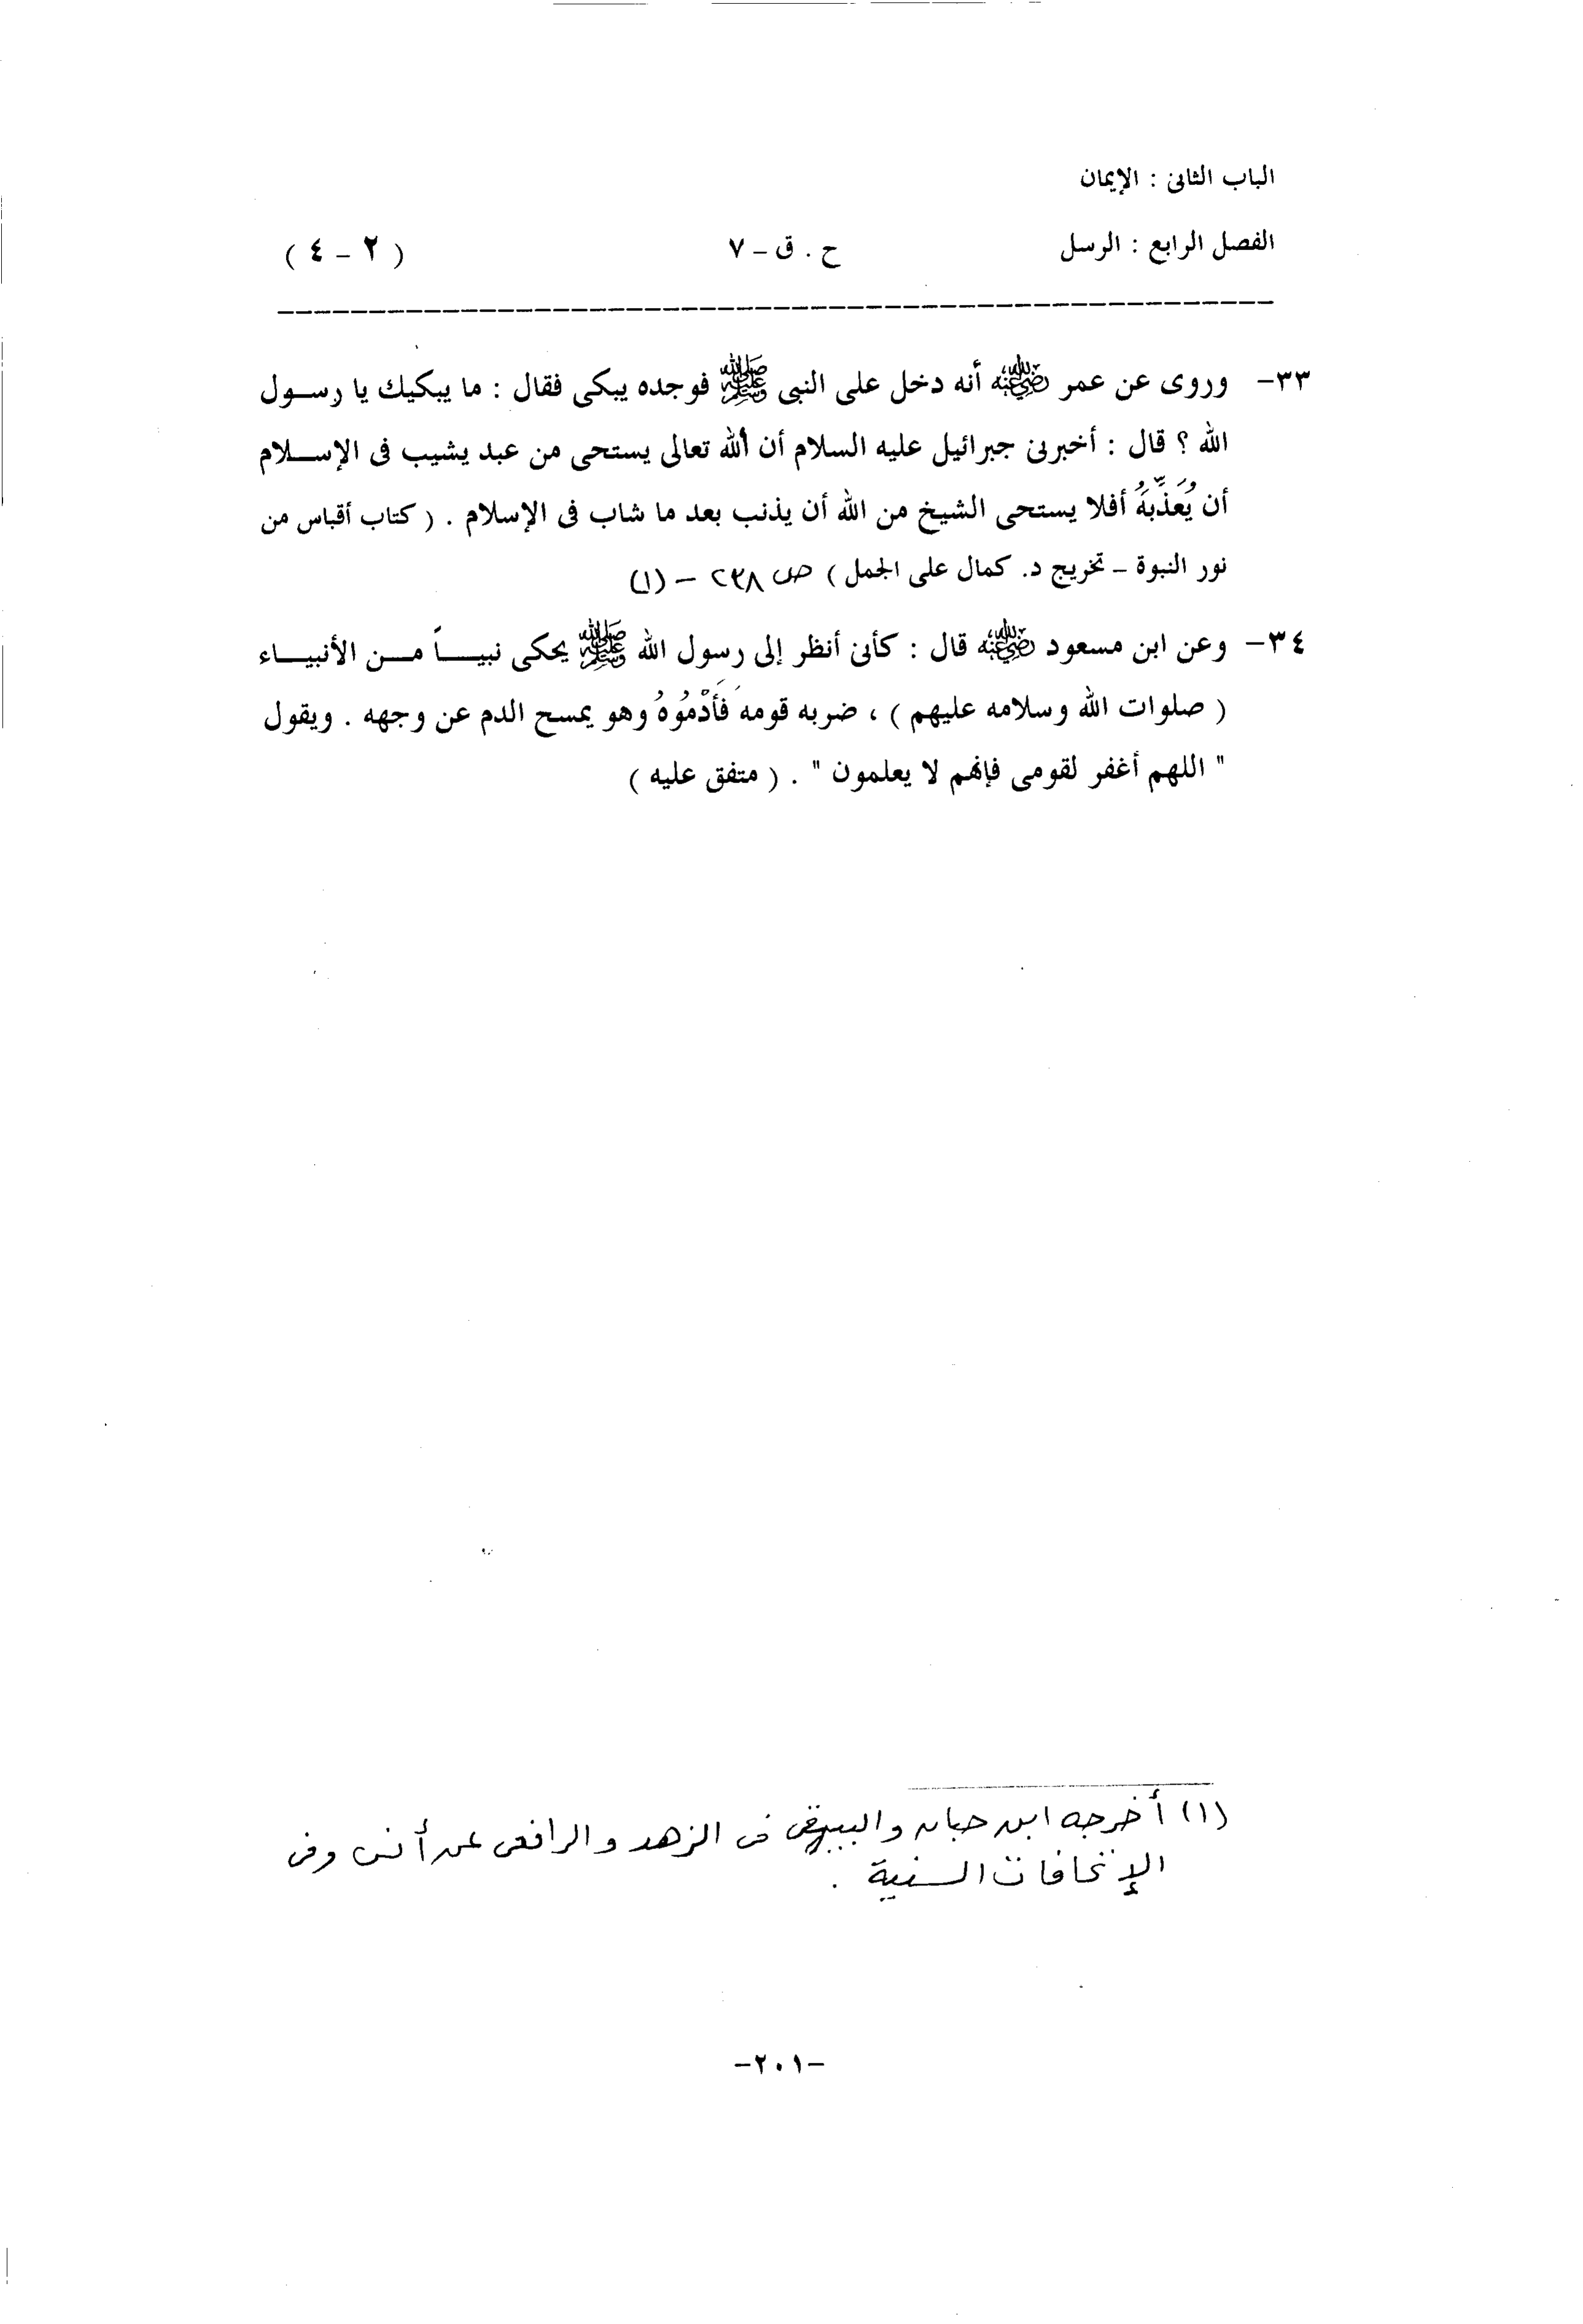 الباب الثانى : الإيمان
الفصل الرابع : الرسل ح . ق – ٧ ( ٢ – ٤ )
٣٣- وروى عن عمر رضي الله عنه أنه دخل على النبى ﷺ فوجده يبكى فقال : ما يبكيك يا رسـول
الله ؟ قال : أخبرنى جبرائيل عليه السلام أن الله تعالى يستحى من عبد يشيب فى الإسـلام
أن يُعَذِّبَهُ أفلا يستحى الشيخ من الله أن يذنب بعد ما شاب فى الإسلام . ( كتاب أقباس من
نور النبوة – تخريج د. كمال على الجمل ) ص ٢٣٨ – (١)
٣٤- وعن ابن مسعود رضي الله عنه قال : كأنى أنظر إلى رسول الله ﷺ يحكى نبيـاً مـن الأنبيـاء
( صلوات الله وسلامه عليهم ) ، ضربه قومه فَأَدْمُوُهُ وهو يمسح الدم عن وجهه . ويقول
" اللهم أغفر لقومى فإنهم لا يعلمون " . ( متفق عليه )
(١) أخرجه ابن حبان والبيهقى فى الزهد والرافعى عن أنس وفى
الإتحافات السنية .
-٢٠١-